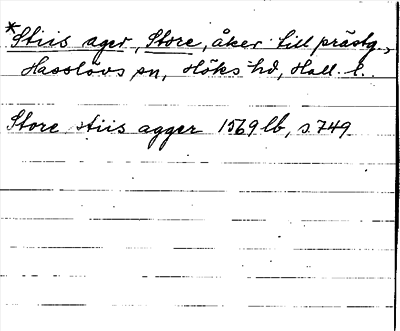 *Stiis ager, Store, åker till prästg.,
Hasslövs sn, Höks hd, Hall. l.
Store stiis agger 1569 lb, s. 749.